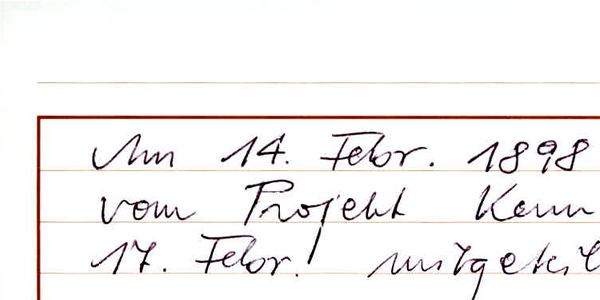 Am 14. Febr. 1898
vom Projekt Kenn
17. Febr. mitgeteil